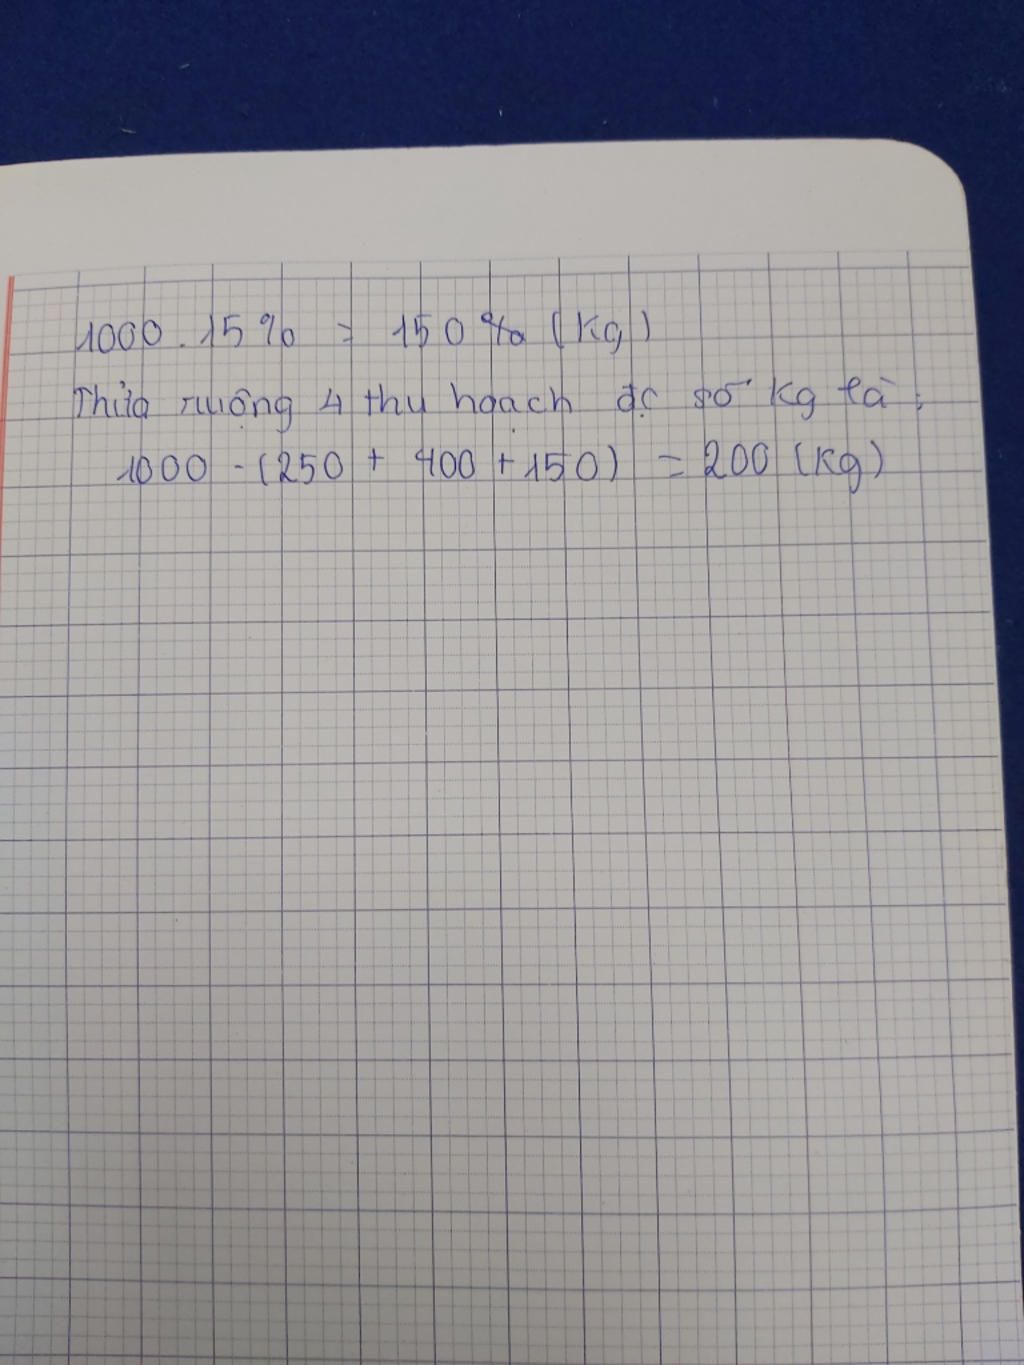 1000 . 15% = 150% (Kg)
Thửa ruộng 4 thu hoạch đc số kg là:
1000 - (250 + 400 + 150) = 200 (Kg)